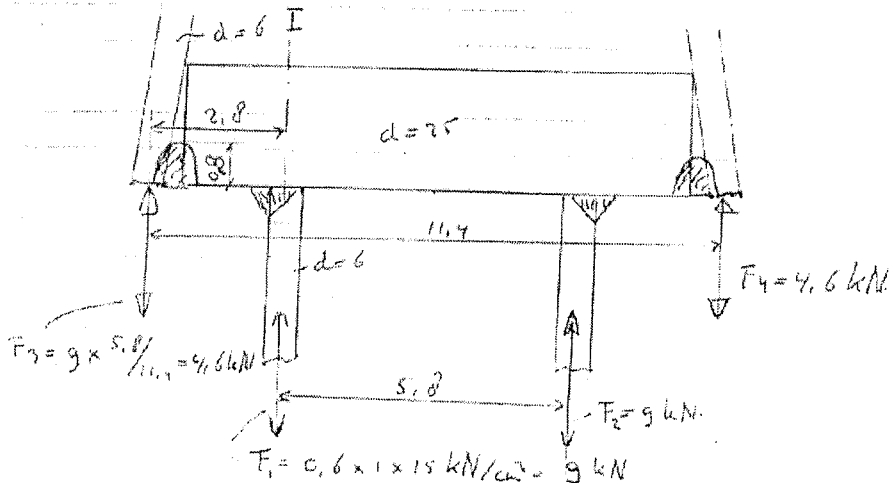 d=6 I
2,8
d=25
0,8
11,4
d=6
F4=4,6 kN
F3= 9 x 5,8/11,4 =4,6kN
5,8
F2=9 kN.
F1= 0,6 x 1 x 15 kN/cm² = 9 kN